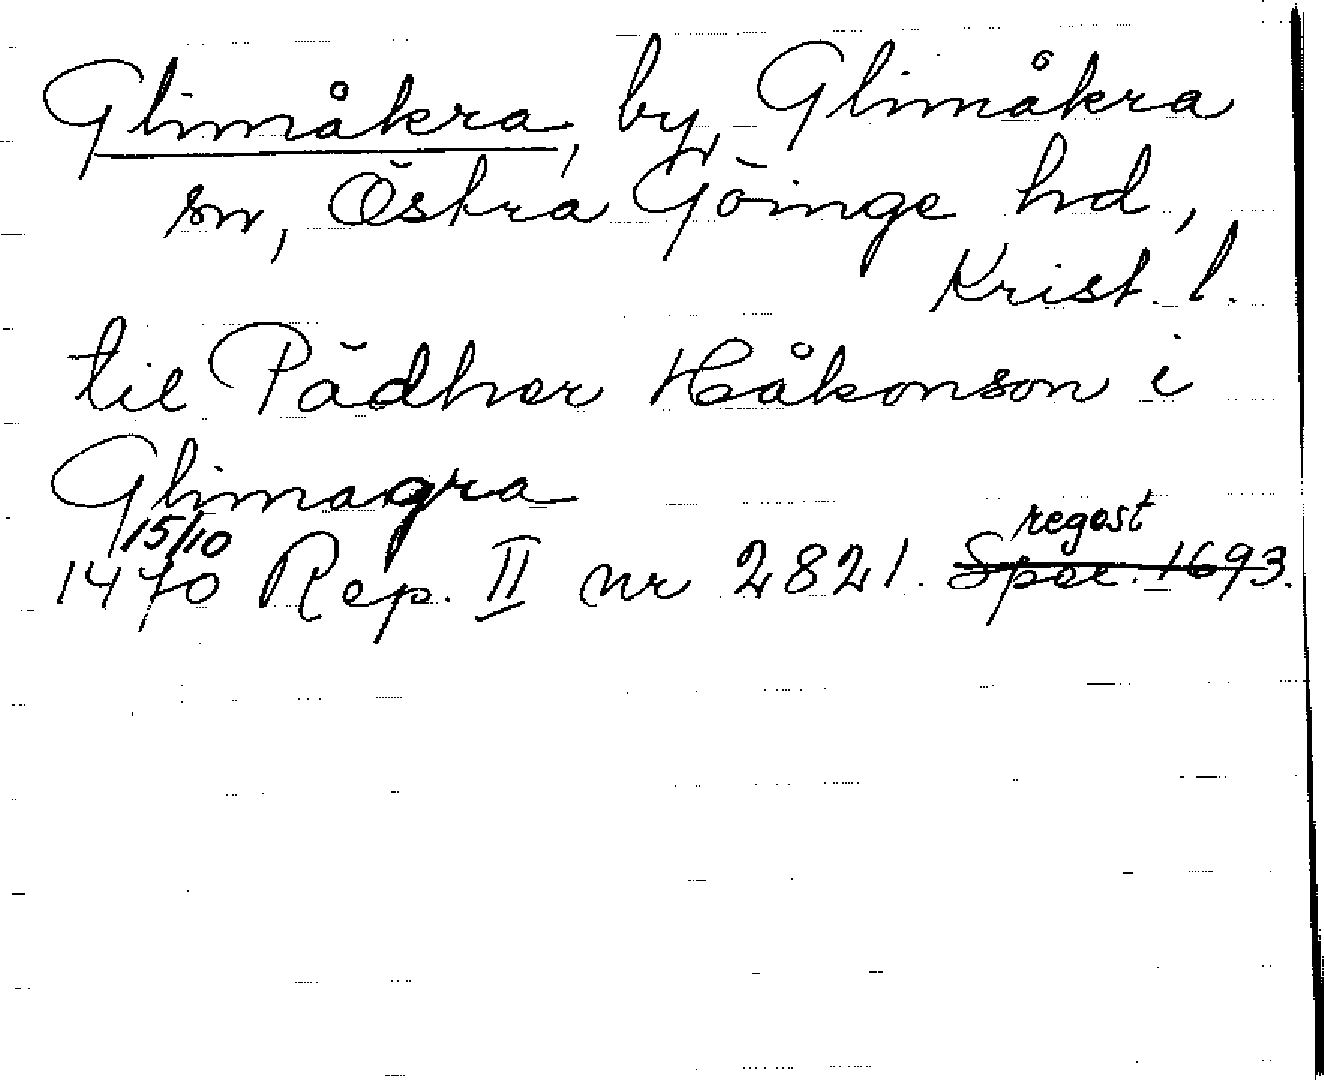 Glimåkra, by, Glimåkra
sn, Östra Göinge hd,
Krist. l.
til Pädher Håkonson i
Glimagra
15/10 regest
1470 Rep. II nr 2821. Spec. 1693.